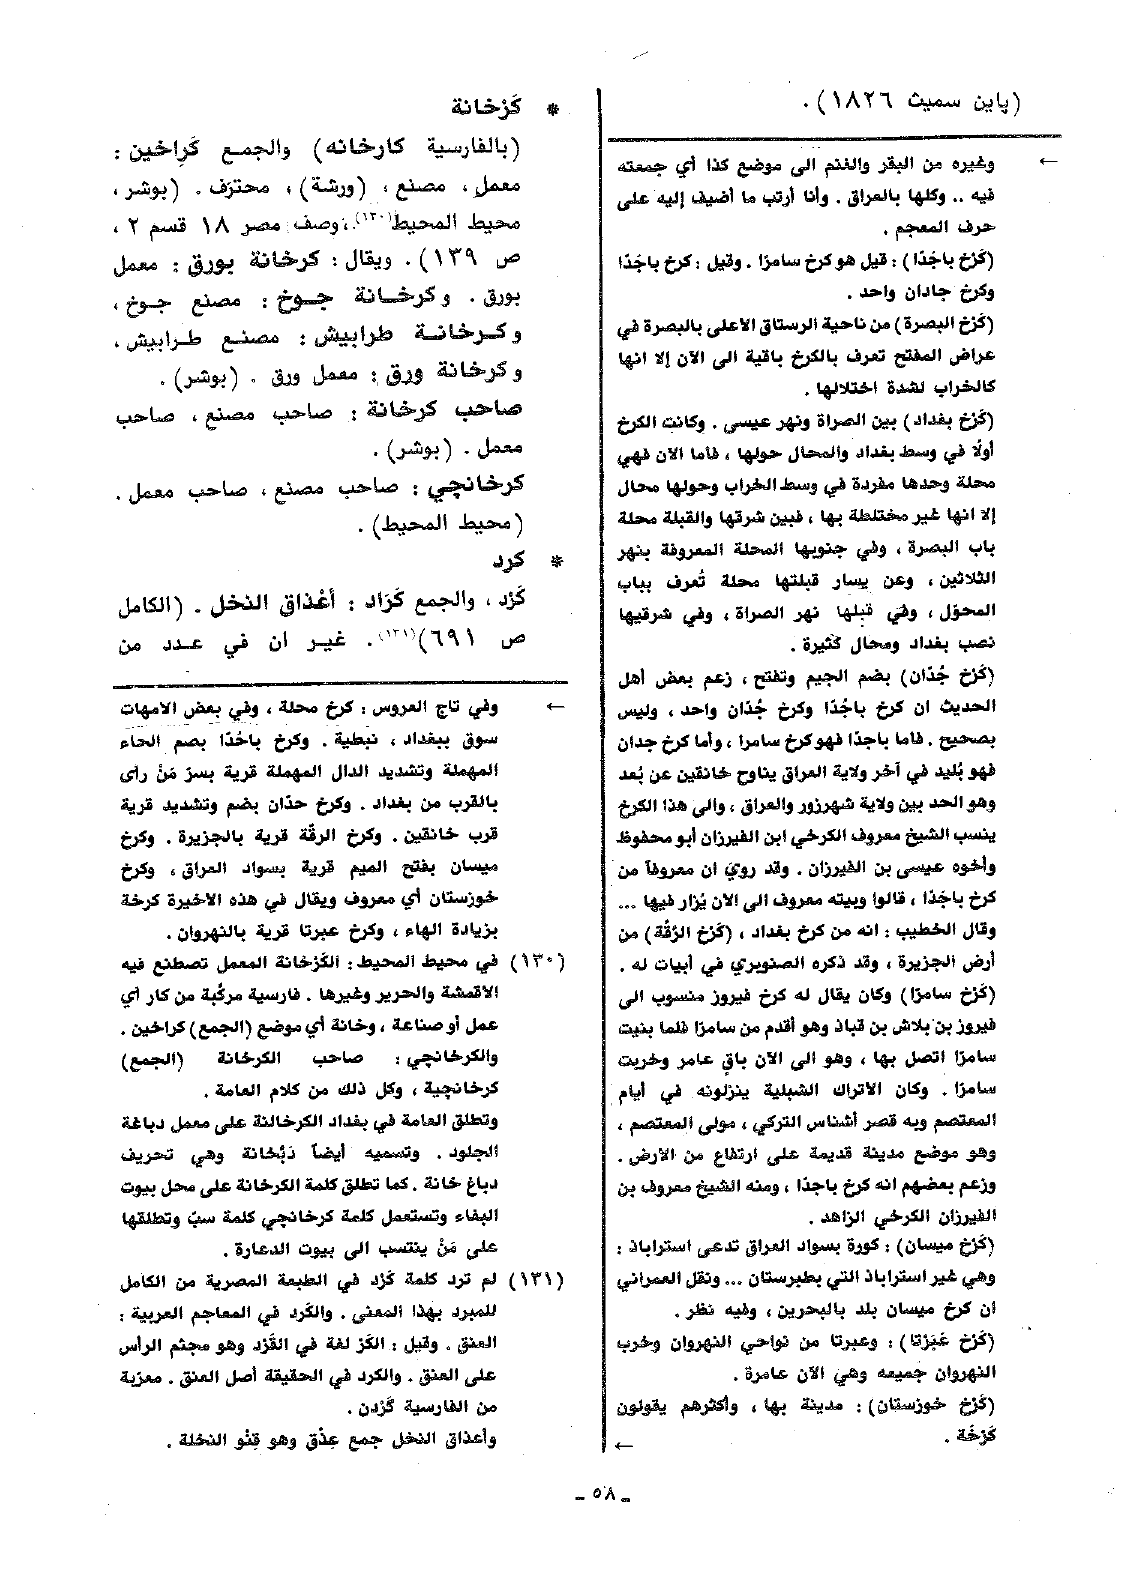 (پاين سميث ١٨٢٦).
← وغيره من البقر والغنم الى موضع كذا أي جمعته
فيه .. وكلها بالعراق . وأنا أرتب ما أضيف إليه على
حرف المعجم .
(كَرْخ باجَدّا) : قيل هو كرخ سامرّا . وقيل : كرخ باجَدّا
وكرخ جادان واحد .
(كَرْخ البصرة) من ناحية الرستاق الاعلى بالبصرة في
عراض المفتح تعرف بالكرخ باقية الى الآن إلا انها
كالخراب لشدة اختلالها .
(كَرْخ بغداد) بين الصراة ونهر عيسى . وكانت الكرخ
أولًا في وسط بغداد والمحال حولها ، فاما الآن فهي
محلة وحدها مفردة في وسط الخراب وحولها محال
إلا انها غير مختلطة بها ، فبين شرقها والقبلة محلة
باب البصرة ، وفي جنوبها المحلة المعروفة بنهر
الثلاثين ، وعن يسار قبلتها محلة تُعرف بباب
المحوّل ، وفي قبلها نهر الصراة ، وفي شرقيها
نصب بغداد ومحال كثيرة .
(كَرْخ جُدّان) بضم الجيم وتفتح ، زعم بعض أهل
الحديث ان كرخ باجُدّا وكرخ جُدّان واحد ، وليس
بصحيح . فاما باجدّا فهو كرخ سامرا ، وأما كرخ جدان
فهو بُليد في آخر ولاية العراق يناوح خانقين عن بُعد
وهو الحد بين ولاية شهرزور والعراق ، والى هذا الكرخ
ينسب الشيخ معروف الكرخي ابن الفيرزان أبو محفوظ
وأخوه عيسى بن الفيرزان . وقد روي ان معروفاً من
كرخ باجَدّا ، قالوا وبيته معروف الى الان يُزار فيها ...
وقال الخطيب : انه من كرخ بغداد ، (كَرْخ الرّقّة) من
أرض الجزيرة ، وقد ذكره الصنوبري في أبيات له .
(كَرْخ سامرّا) وكان يقال له كرخ فيروز منسوب الى
فيروز بن بلاش بن قباذ وهو أقدم من سامرّا فلما بنيت
سامرّا اتصل بها ، وهو الى الآن باقٍ عامر وخربت
سامرّا . وكان الاتراك الشبلية ينزلونه في أيام
المعتصم وبه قصر أشناس التركي ، مولى المعتصم ،
وهو موضع مدينة قديمة على ارتفاع من الارض .
وزعم بعضهم انه كرخ باجدّا ، ومنه الشيخ معروف بن
الفيرزان الكرخي الزاهد .
(كَرْخ ميسان) : كورة بسواد العراق تدعى استراباذ :
وهي غير استراباذ التي بطبرستان ... ونقل العمراني
ان كرخ ميسان بلد بالبحرين ، وفيه نظر .
(كَرْخ عَبَرْتا) : وعبرتا من نواحي النهروان وخرب
النهروان جميعه وهي الآن عامرة .
(كَرْخ خوزستان) : مدينة بها ، وأكثرهم يقولون
كَرْخَة .
←
* كَرْخانة
(بالفارسية كارخانه) والجمع كَراخين :
معمل ، مصنع ، (ورشة) ، محترَف . (بوشر ،
محيط المحيط(١٣٠)، وصف مصر ١٨ قسم ٢ ،
ص ١٣٩) . ويقال : كرخانة بورق : معمل
بورق . وكرخانة جوخ : مصنع جوخ ،
وكرخانة طرابيش : مصنع طرابيش ،
وكرخانة ورق : معمل ورق . (بوشر) .
صاحب كرخانة : صاحب مصنع ، صاحب
معمل . (بوشر) .
كرخانچي : صاحب مصنع ، صاحب معمل .
(محيط المحيط) .
* كرد
كَرْد ، والجمع كَرَاد : أعْذاق النخل . (الكامل
ص ٦٩١)(١٣١). غير ان في عدد من
← وفي تاج العروس : كرخ محلة ، وفي بعض الامهات
سوق ببغداد ، نبطية . وكرخ باخدّا بضم الحاء
المهملة وتشديد الدال المهملة قرية بسرّ مَنْ رأى
بالقرب من بغداد . وكرخ حدّان بضم وتشديد قرية
قرب خانقين . وكرخ الرقّة قرية بالجزيرة . وكرخ
ميسان بفتح الميم قرية بسواد العراق ، وكرخ
خوزستان أي معروف ويقال في هذه الاخيرة كرخة
بزيادة الهاء ، وكرخ عبرتا قرية بالنهروان .
(١٣٠) في محيط المحيط : الكَرْخانة المعمل تصطنع فيه
الاقمشة والحرير وغيرها . فارسية مركّبة من كار أي
عمل أو صناعة ، وخانة أي موضع (الجمع) كراخين .
والكرخانجي : صاحب الكرخانة (الجمع)
كرخانجية ، وكل ذلك من كلام العامة .
وتطلق العامة في بغداد الكرخالنة على معمل دباغة
الجلود . وتسميه أيضاً دَبّخانة وهي تحريف
دباغ خانة . كما تطلق كلمة الكرخانة على محل بيوت
البغاء وتستعمل كلمة كرخانچي كلمة سبّ وتطلقها
على مَنْ ينتسب الى بيوت الدعارة .
(١٣١) لم ترد كلمة كَرْد في الطبعة المصرية من الكامل
للمبرد بهذا المعنى . والكَرد في المعاجم العربية :
العنق . وقيل : الكَرْ لغة في القَرْد وهو مجثم الرأس
على العنق . والكرد في الحقيقة أصل العنق . معرّبة
من الفارسية گَرْدن .
وأعذاق النخل جمع عِذْق وهو قِنْو النخلة .
ـ ٥٨ ـ